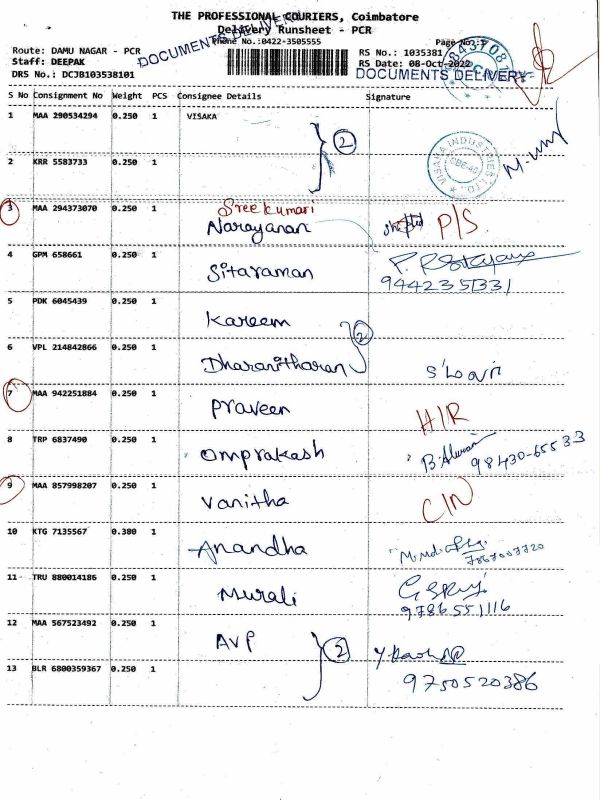 THE PROFESSIONAL COURIERS, Coimbatore
Delivery Runsheet - PCR
Phone No.:0422-3505555
Page No.:1
Route: DAMU NAGAR - PCR
RS No.: 1035381
Staff: DEEPAK
RS Date: 08-Oct-2022
DRS No.: DCJB103538101
DOCUMENTS DELIVERY
DOCUMENTS DELIVERY
S No Consignment No Weight PCS Consignee Details Signature
1 MAA 290534294 0.250 1 VISAKA
2
VISAKA INDUSTRIES LTD.
2 KRR 5583733 0.250 1
3 MAA 294373070 0.250 1 Sreekumari
Narayanan shifted P/S
4 GPM 658661 0.250 1 Sitaraman
9442351331
5 PDK 6045439 0.250 1 Kareem
2
6 VPL 214842866 0.250 1 Dharanitharan
7 MAA 942251884 0.250 1 Praveen H/R
8 TRP 6837490 0.250 1 Omprakash 98430-65533
9 MAA 857998207 0.250 1 Vanitha C/N
10 KTG 7135567 0.380 1 Anandha
11 TRU 880014186 0.250 1 Murali
9786551116
12 MAA 567523492 0.250 1 AVP
2
13 BLR 6800359367 0.250 1 9750520386